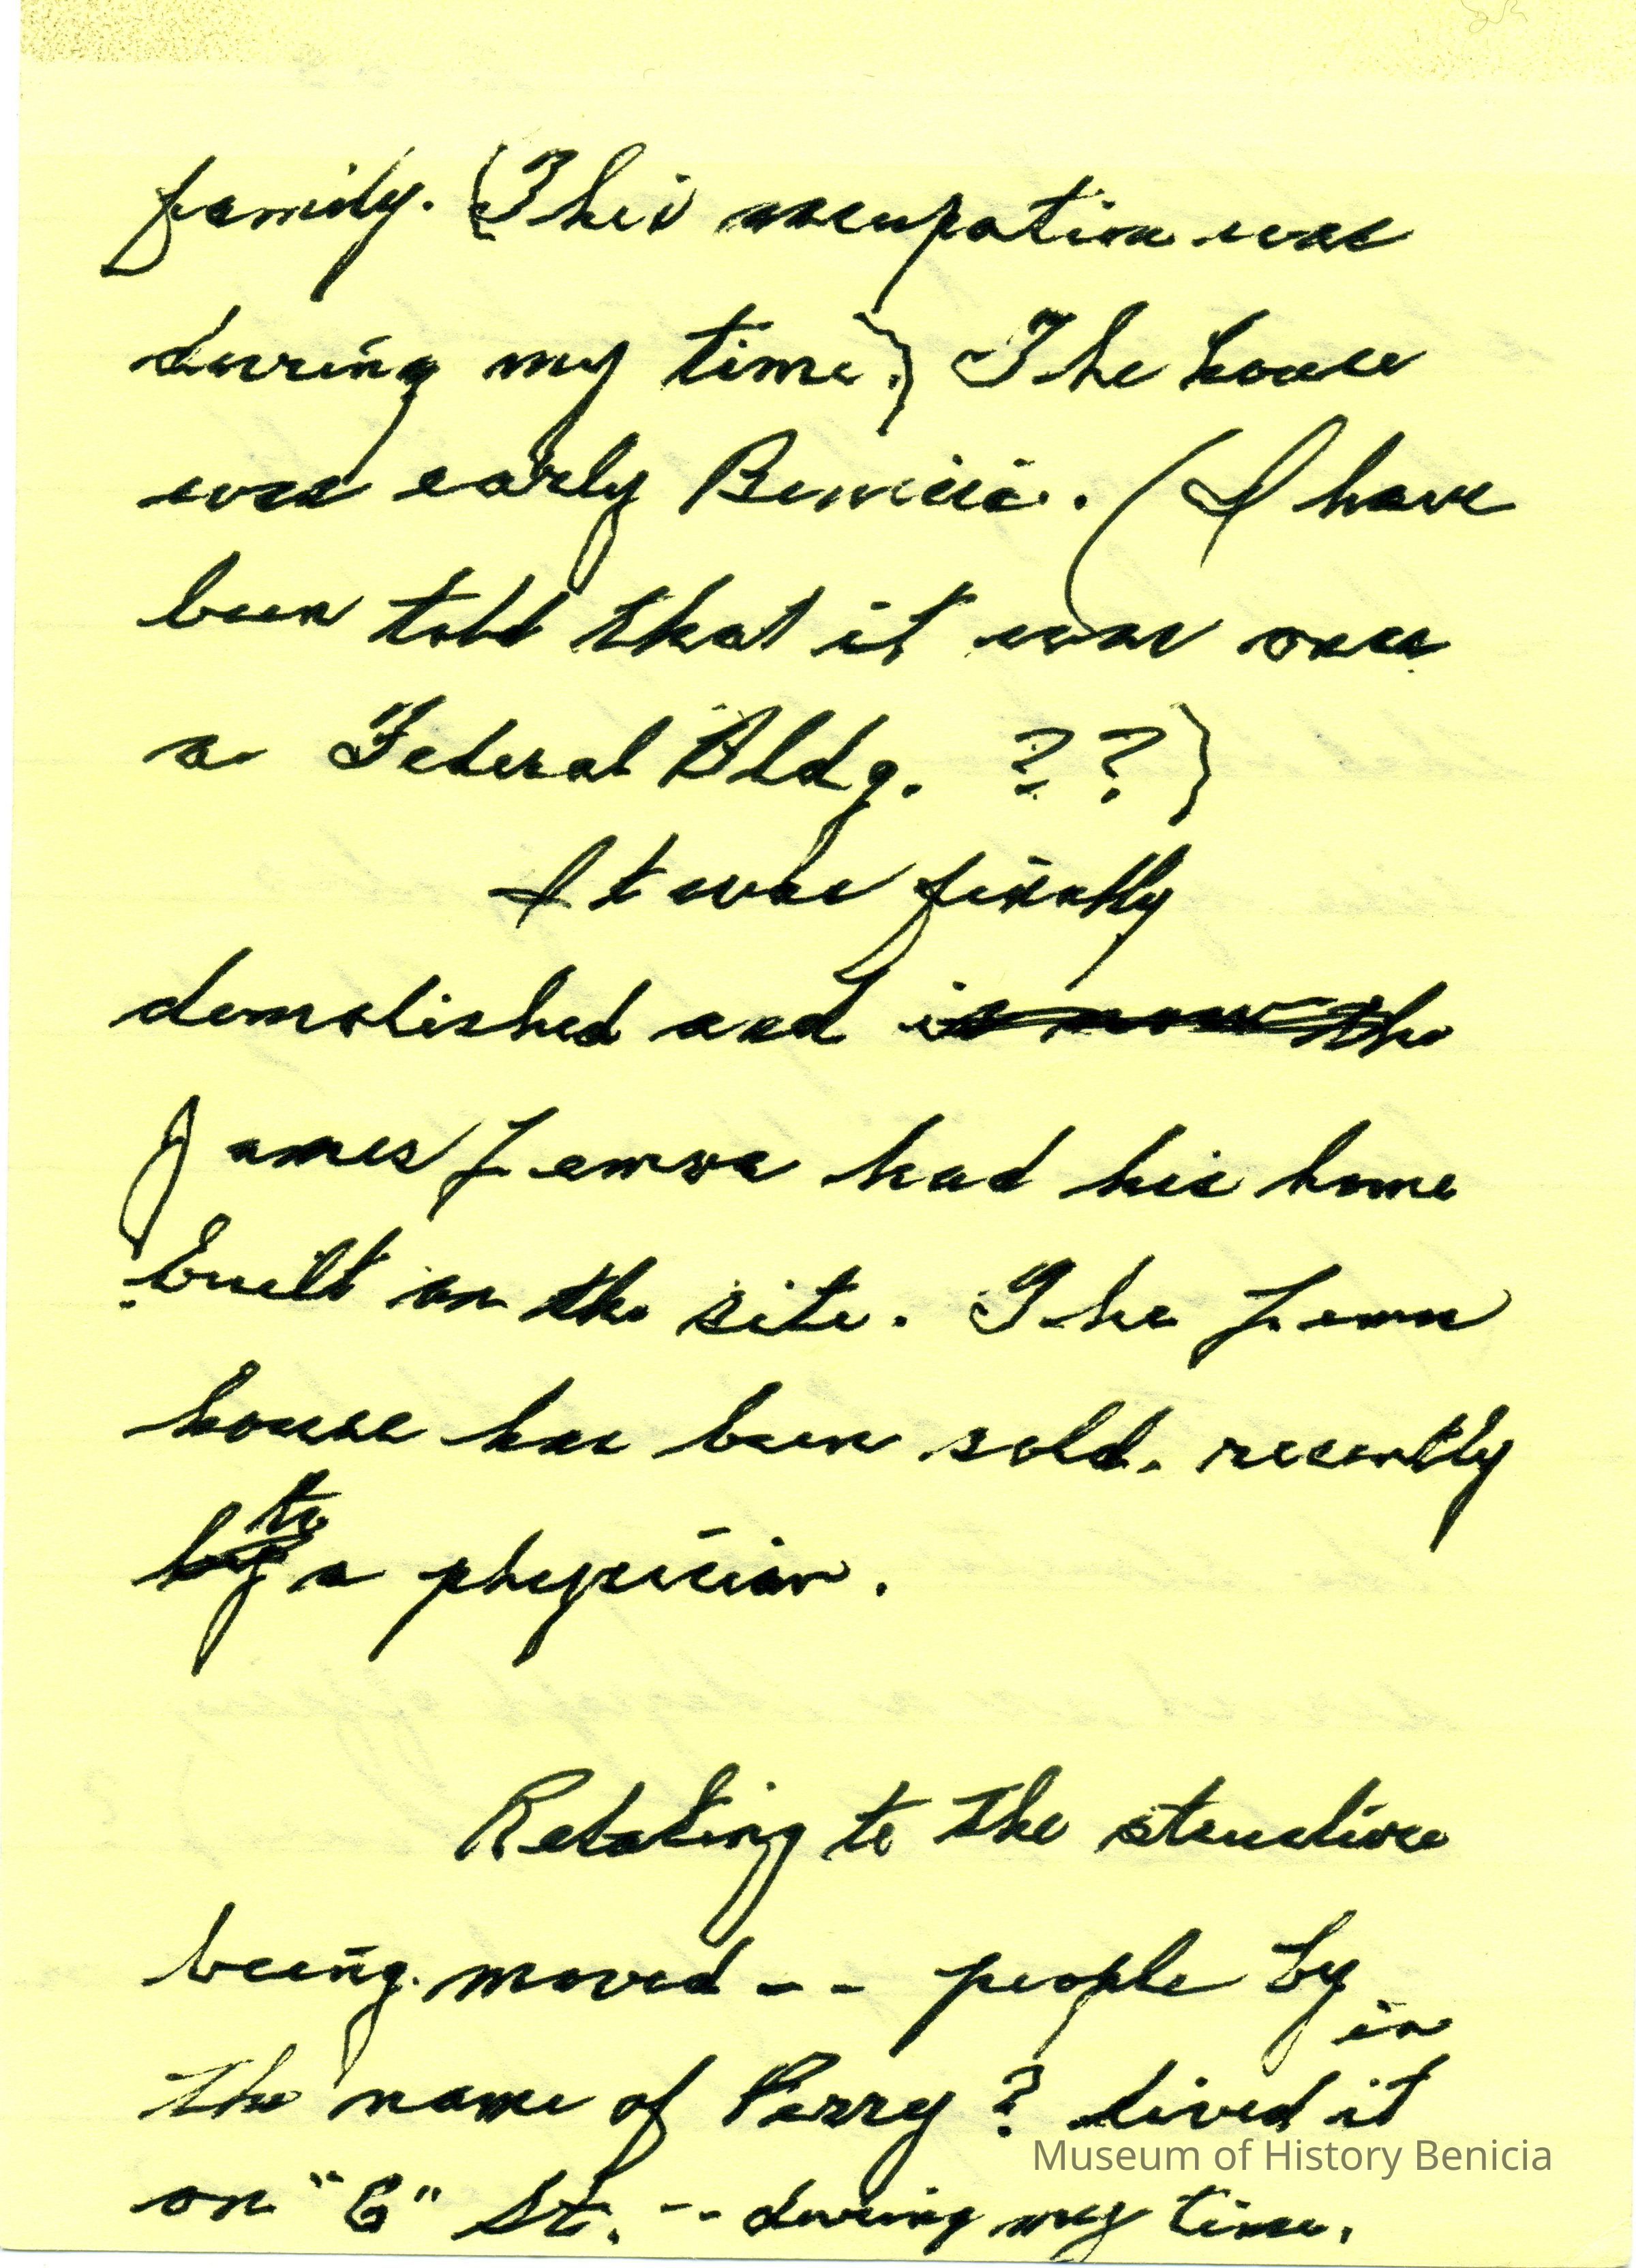 family. {This occupation was
during my time.} The house
was early Benicia. (I have
been told that it was once
a Federal Bldg. ??}
It was finally
demolished and is now the
James Lemos had his home
built on the site. The Lemos
house has been sold. recently
by to a physician.
Relating to the structure
being moved -- people by
the name of Perry? lived in it
on "G" St. -- during my time.
Museum of History Benicia